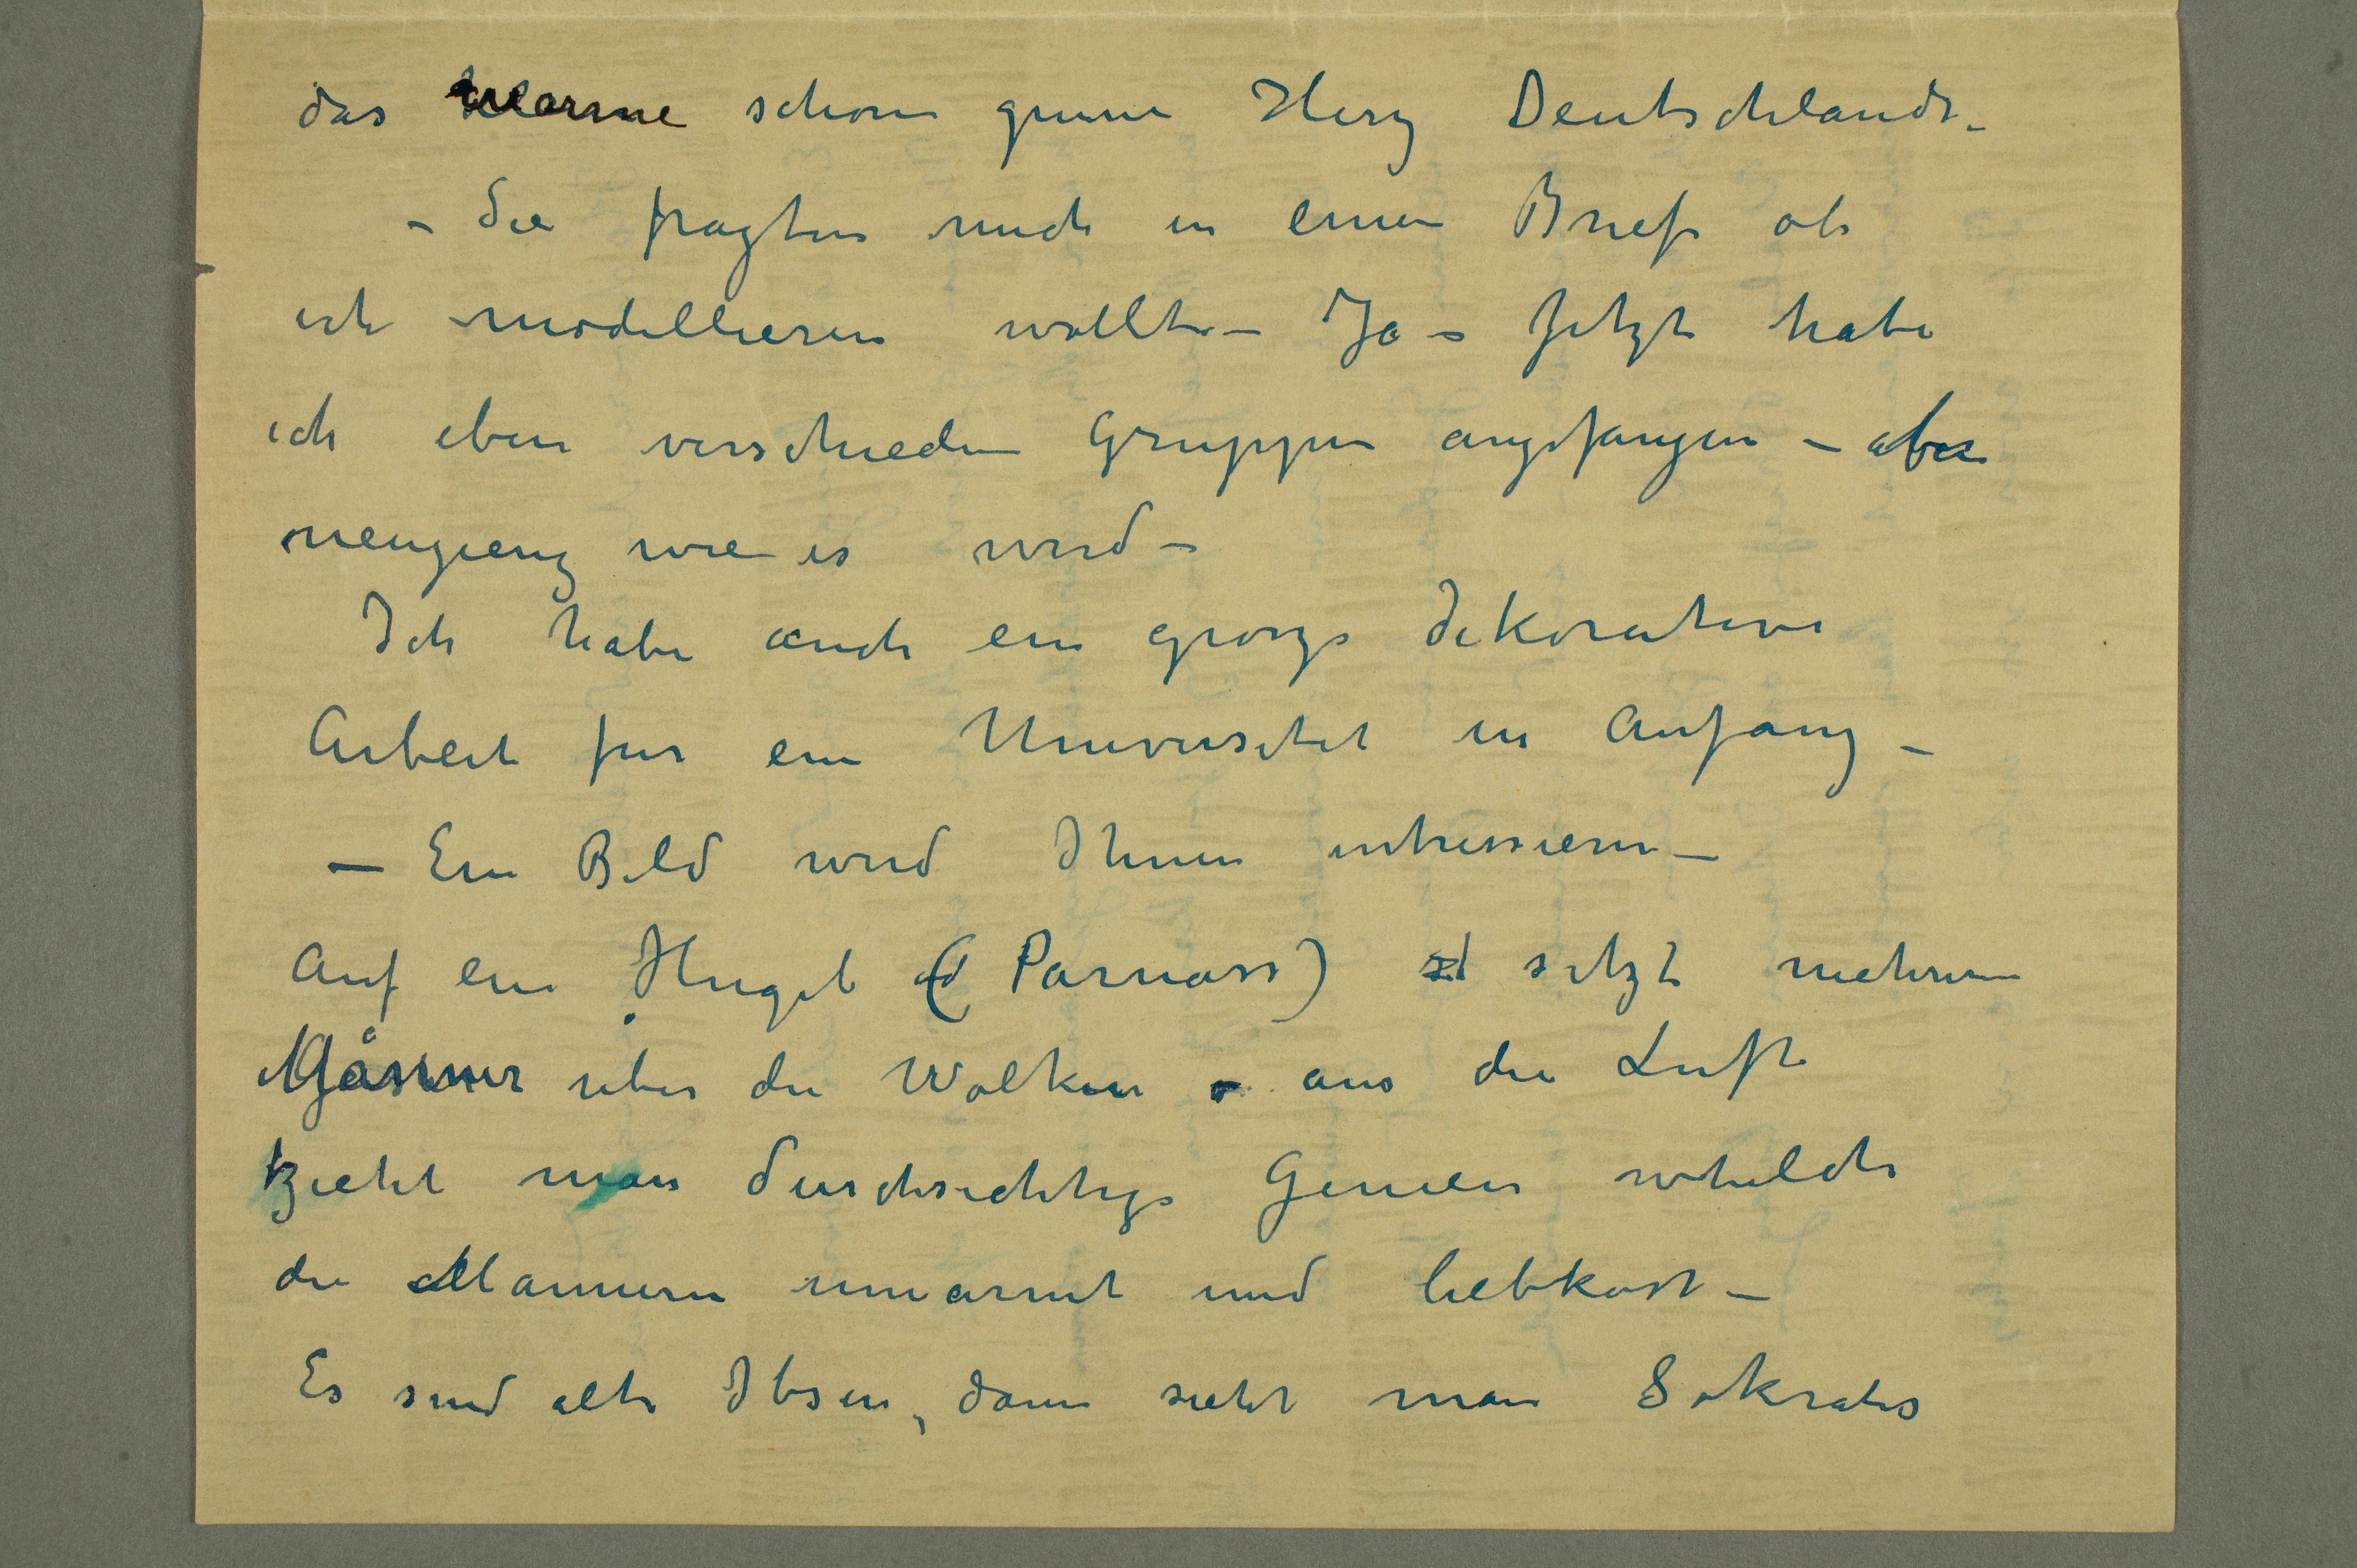 das warme schöne grüne Herz Deutschlands.
– Sie fragten mich in einen Brief ob
ich modellieren wollte – Ja – Jetzt habe
ich eben verschieden Gruppen angefangen – aber
neugierig wie es wird –
Ich habe auch ein grosze dekorative
Arbeit fur ein Universitet in Anfang –
– Ein Bild wird Ihnen intressieren –
Auf ein Hugel (d Parnass) sitzt mehrere
Månner uber die Wolken – aus die Luft
zieht man durchsichtige Genien whelche
die Mannern umarmt und liebkost –
Es sind alte Ibsen, dann sieht man Sokrates